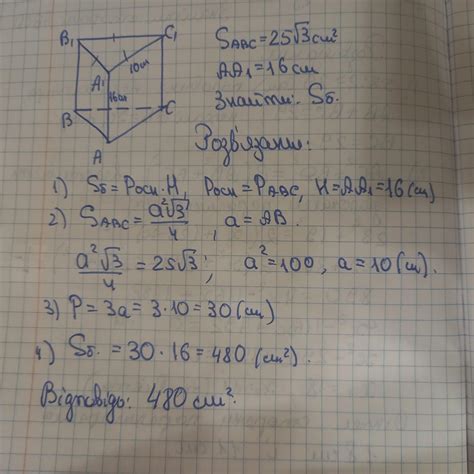 B₁
C₁
A₁
10см
16см
B
C
A
S_ABC = 25√3 см²
AA₁ = 16 см
Знайти: Sб.
Розв'язання:
1) Sб = Pосн · H, Pосн = P_ABC, H = AA₁ = 16 (см)
2) S_ABC = a²√3/4, a = AB.
a²√3/4 = 25√3; a² = 100, a = 10 (см).
3) P = 3a = 3 · 10 = 30 (см)
4) Sб. = 30 · 16 = 480 (см²).
Відповідь: 480 см².